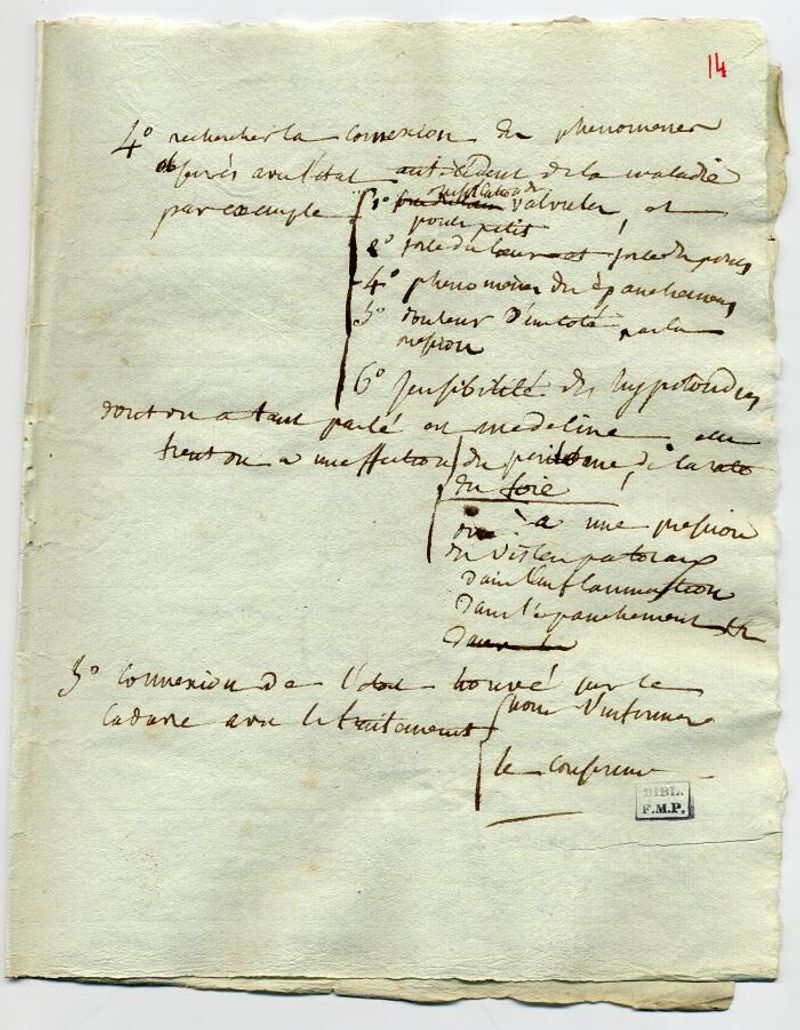 14
4° rechercher la connexion des phenomenes
observés avec l'état antécédent de la maladie
par exemple
1° ossification des valvules, et
pouls petit
2° force du coeur et force du pouls
4° phenomenes des épanchemens
5° douleur d'un coté par la
pression
6° sensibilité des hypocondres
dont on a tant parlé en medecine
tient on a une affection du peritoine, de la rate
du foie
ou à une pression
du viscere pectoraux
dans l'inflammation
dans l'épanchement
5° connexion de l'état trouvé sur le
cadavre avec le traitement
le confirme
BIBL.
F.M.P.